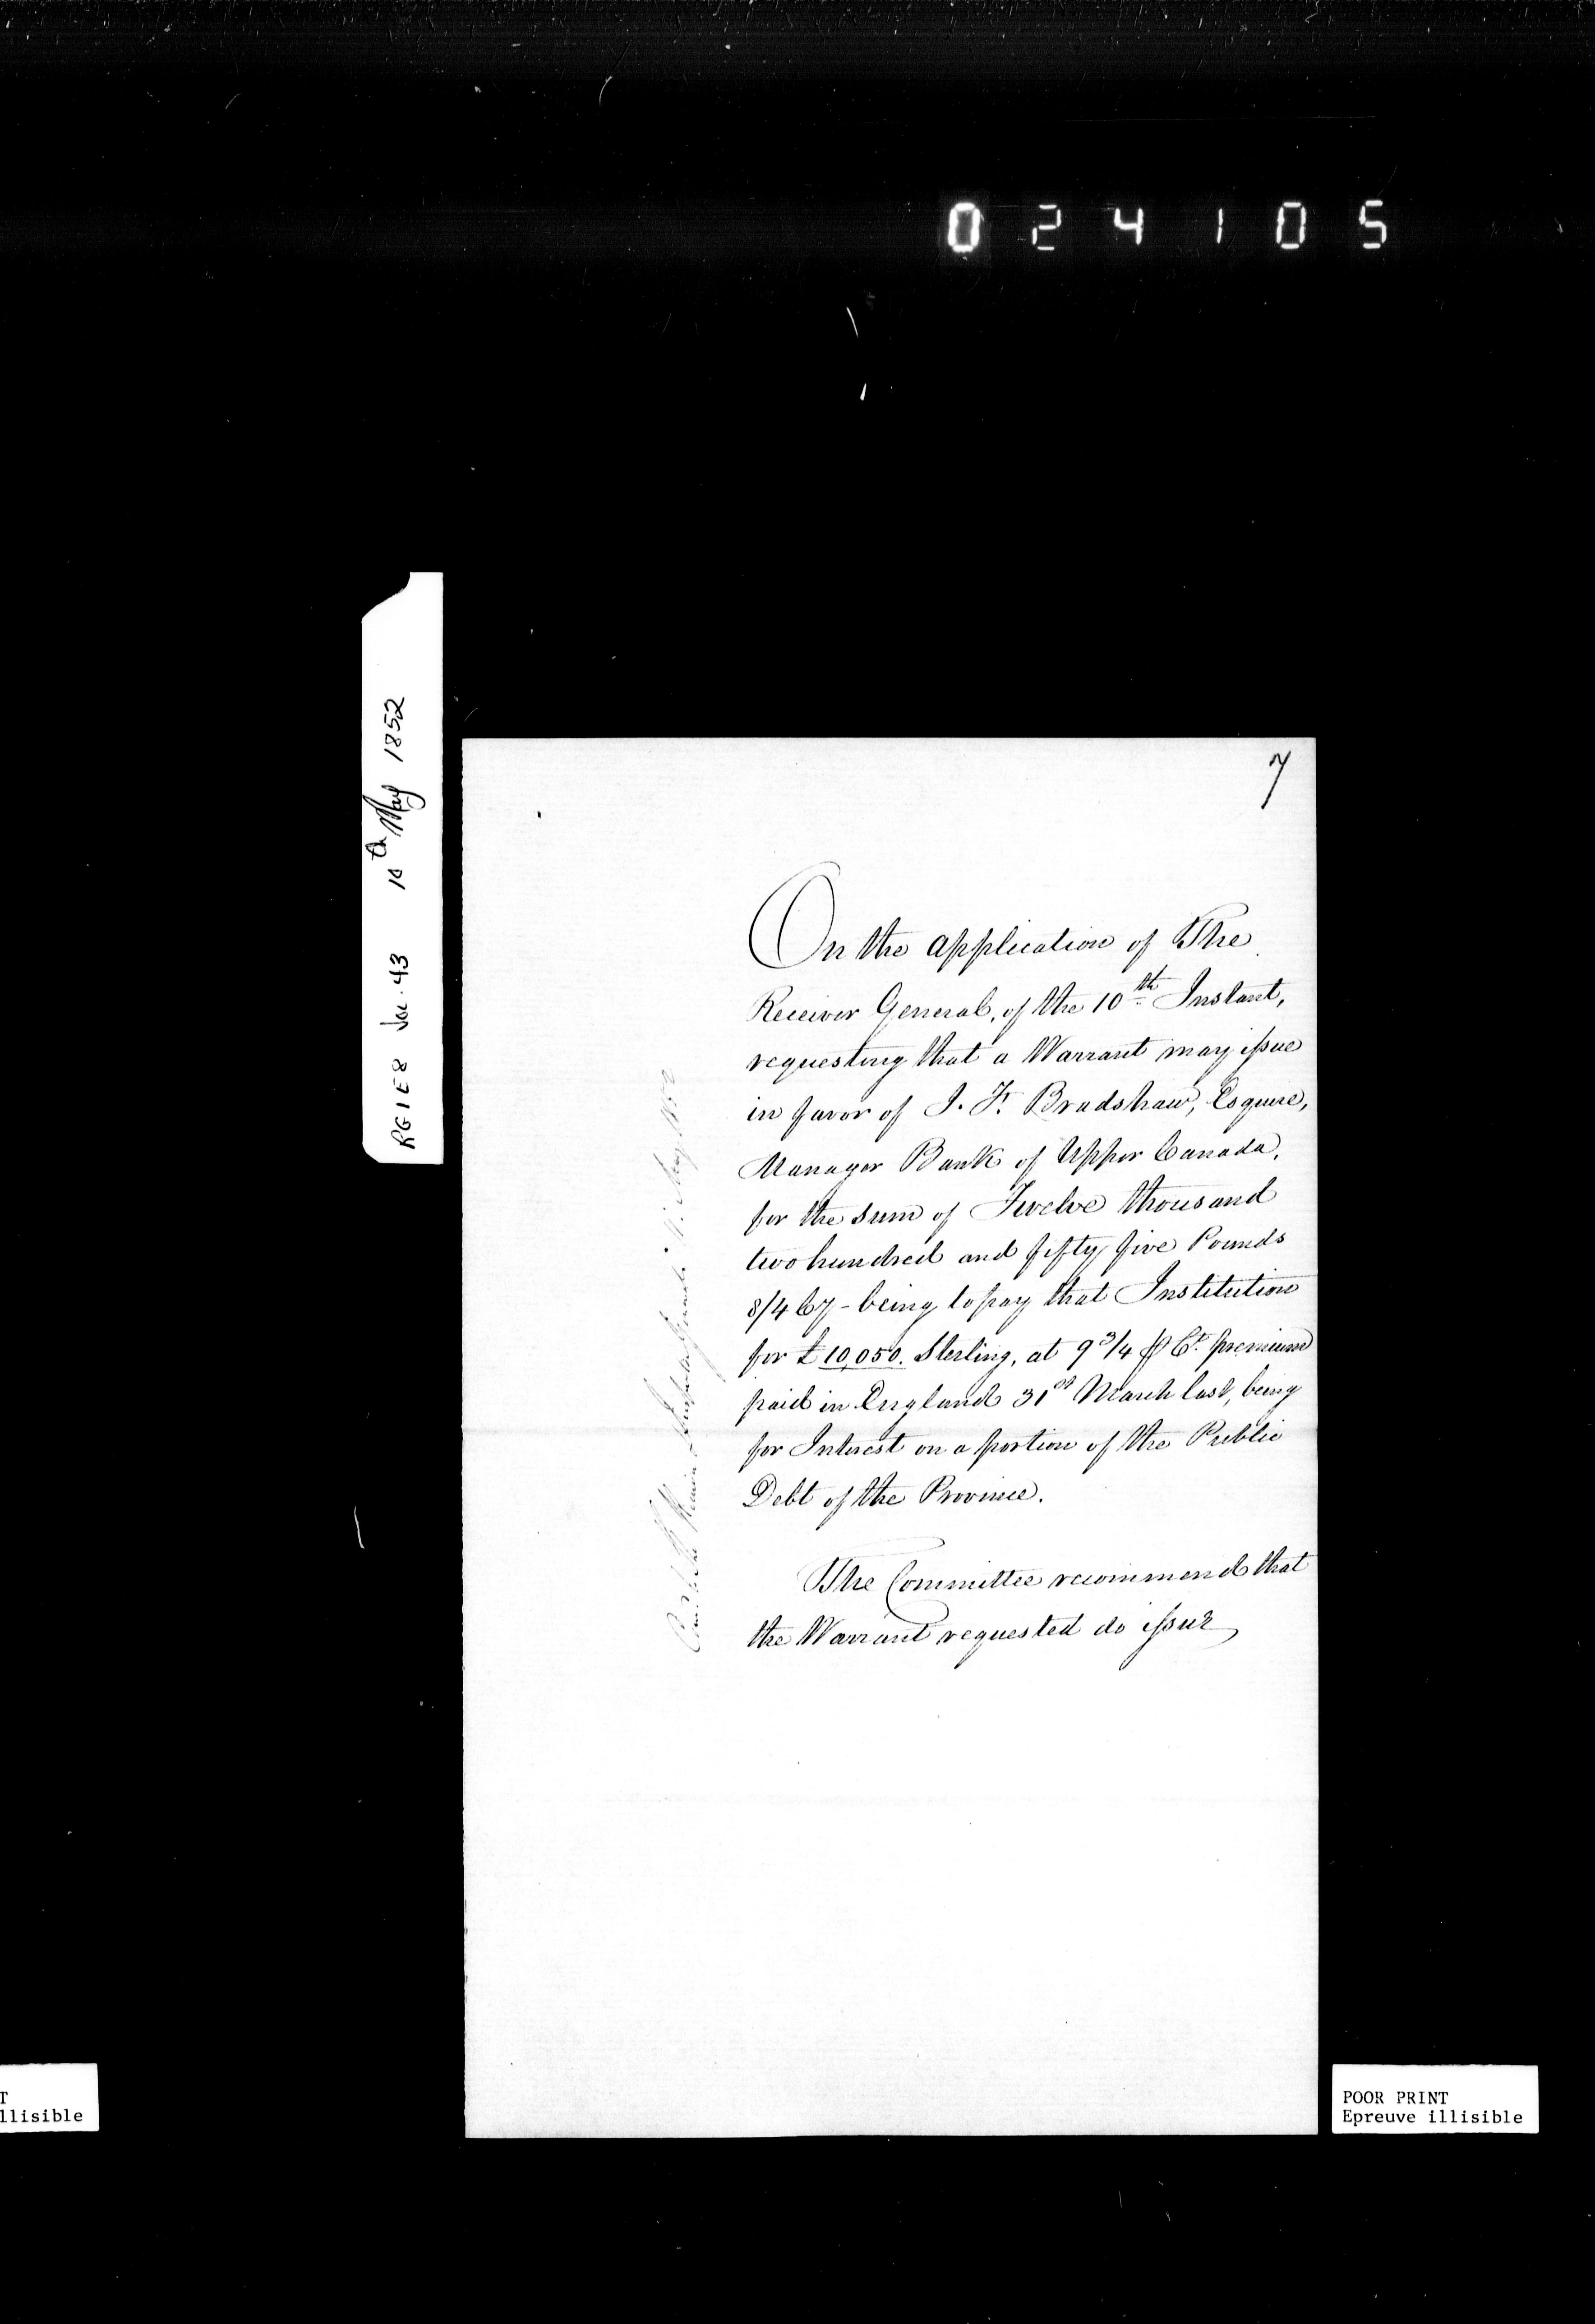 024105
RG1E8 Vol. 43 10th May 1852
7
On the application of The
Receiver General, of the 10th Instant,
requesting that a Warrant may issue
in favor of J. F. Bradshaw, Esquire,
Manager Bank of Upper Canada,
for the sum of Twelve thousand
two hundred and fifty five Pounds
8/4 Cy - being to pay that Institution
for £10,050. Sterling, at 9 3/4 ⅌ Ct. premium
paid in England 31st March last, being
for Interest on a portion of the Public
Debt of the Province.
The Committee recommend that
the Warrant requested do issue
May 1852
T
llisible
POOR PRINT
Epreuve illisible